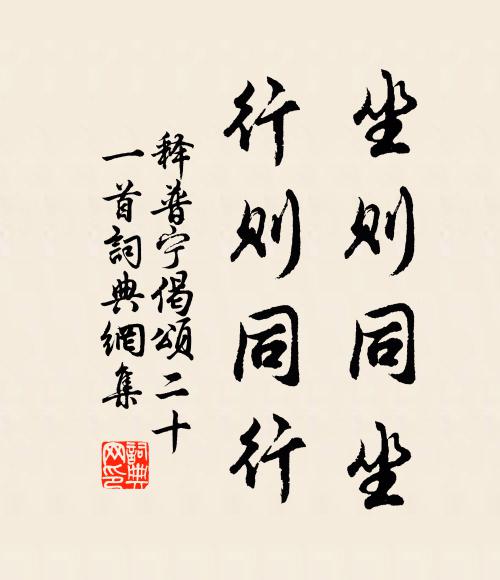 坐则同坐
行则同行
释普宁偈頌二十
一首詞典網集
詞典
网印